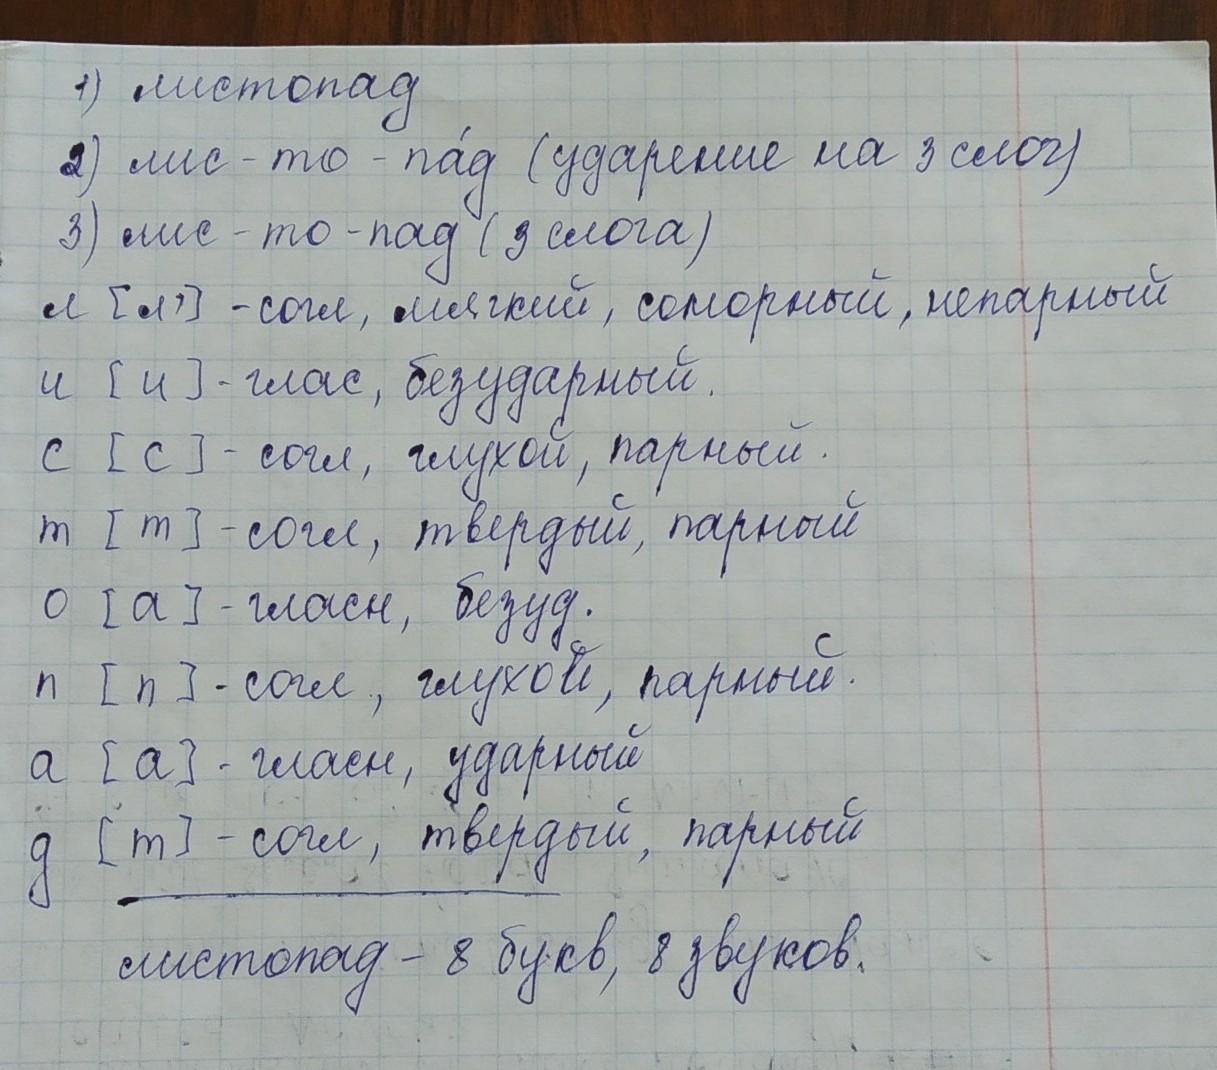 1) листопад
2) лис - то - па́д (ударение на 3 слог)
3) лис - то - пад (3 слога)
л [л'] - согл, мягкий, сонорный, непарный
и [и] - глас, безударный.
с [с] - согл, глухой, парный.
т [т] - согл, твердый, парный
о [а] - гласн, безуд.
п [п] - согл, глухой, парный.
а [а] - гласн, ударный
д [т] - согл, твердый, парный
листопад - 8 букв, 8 звуков.